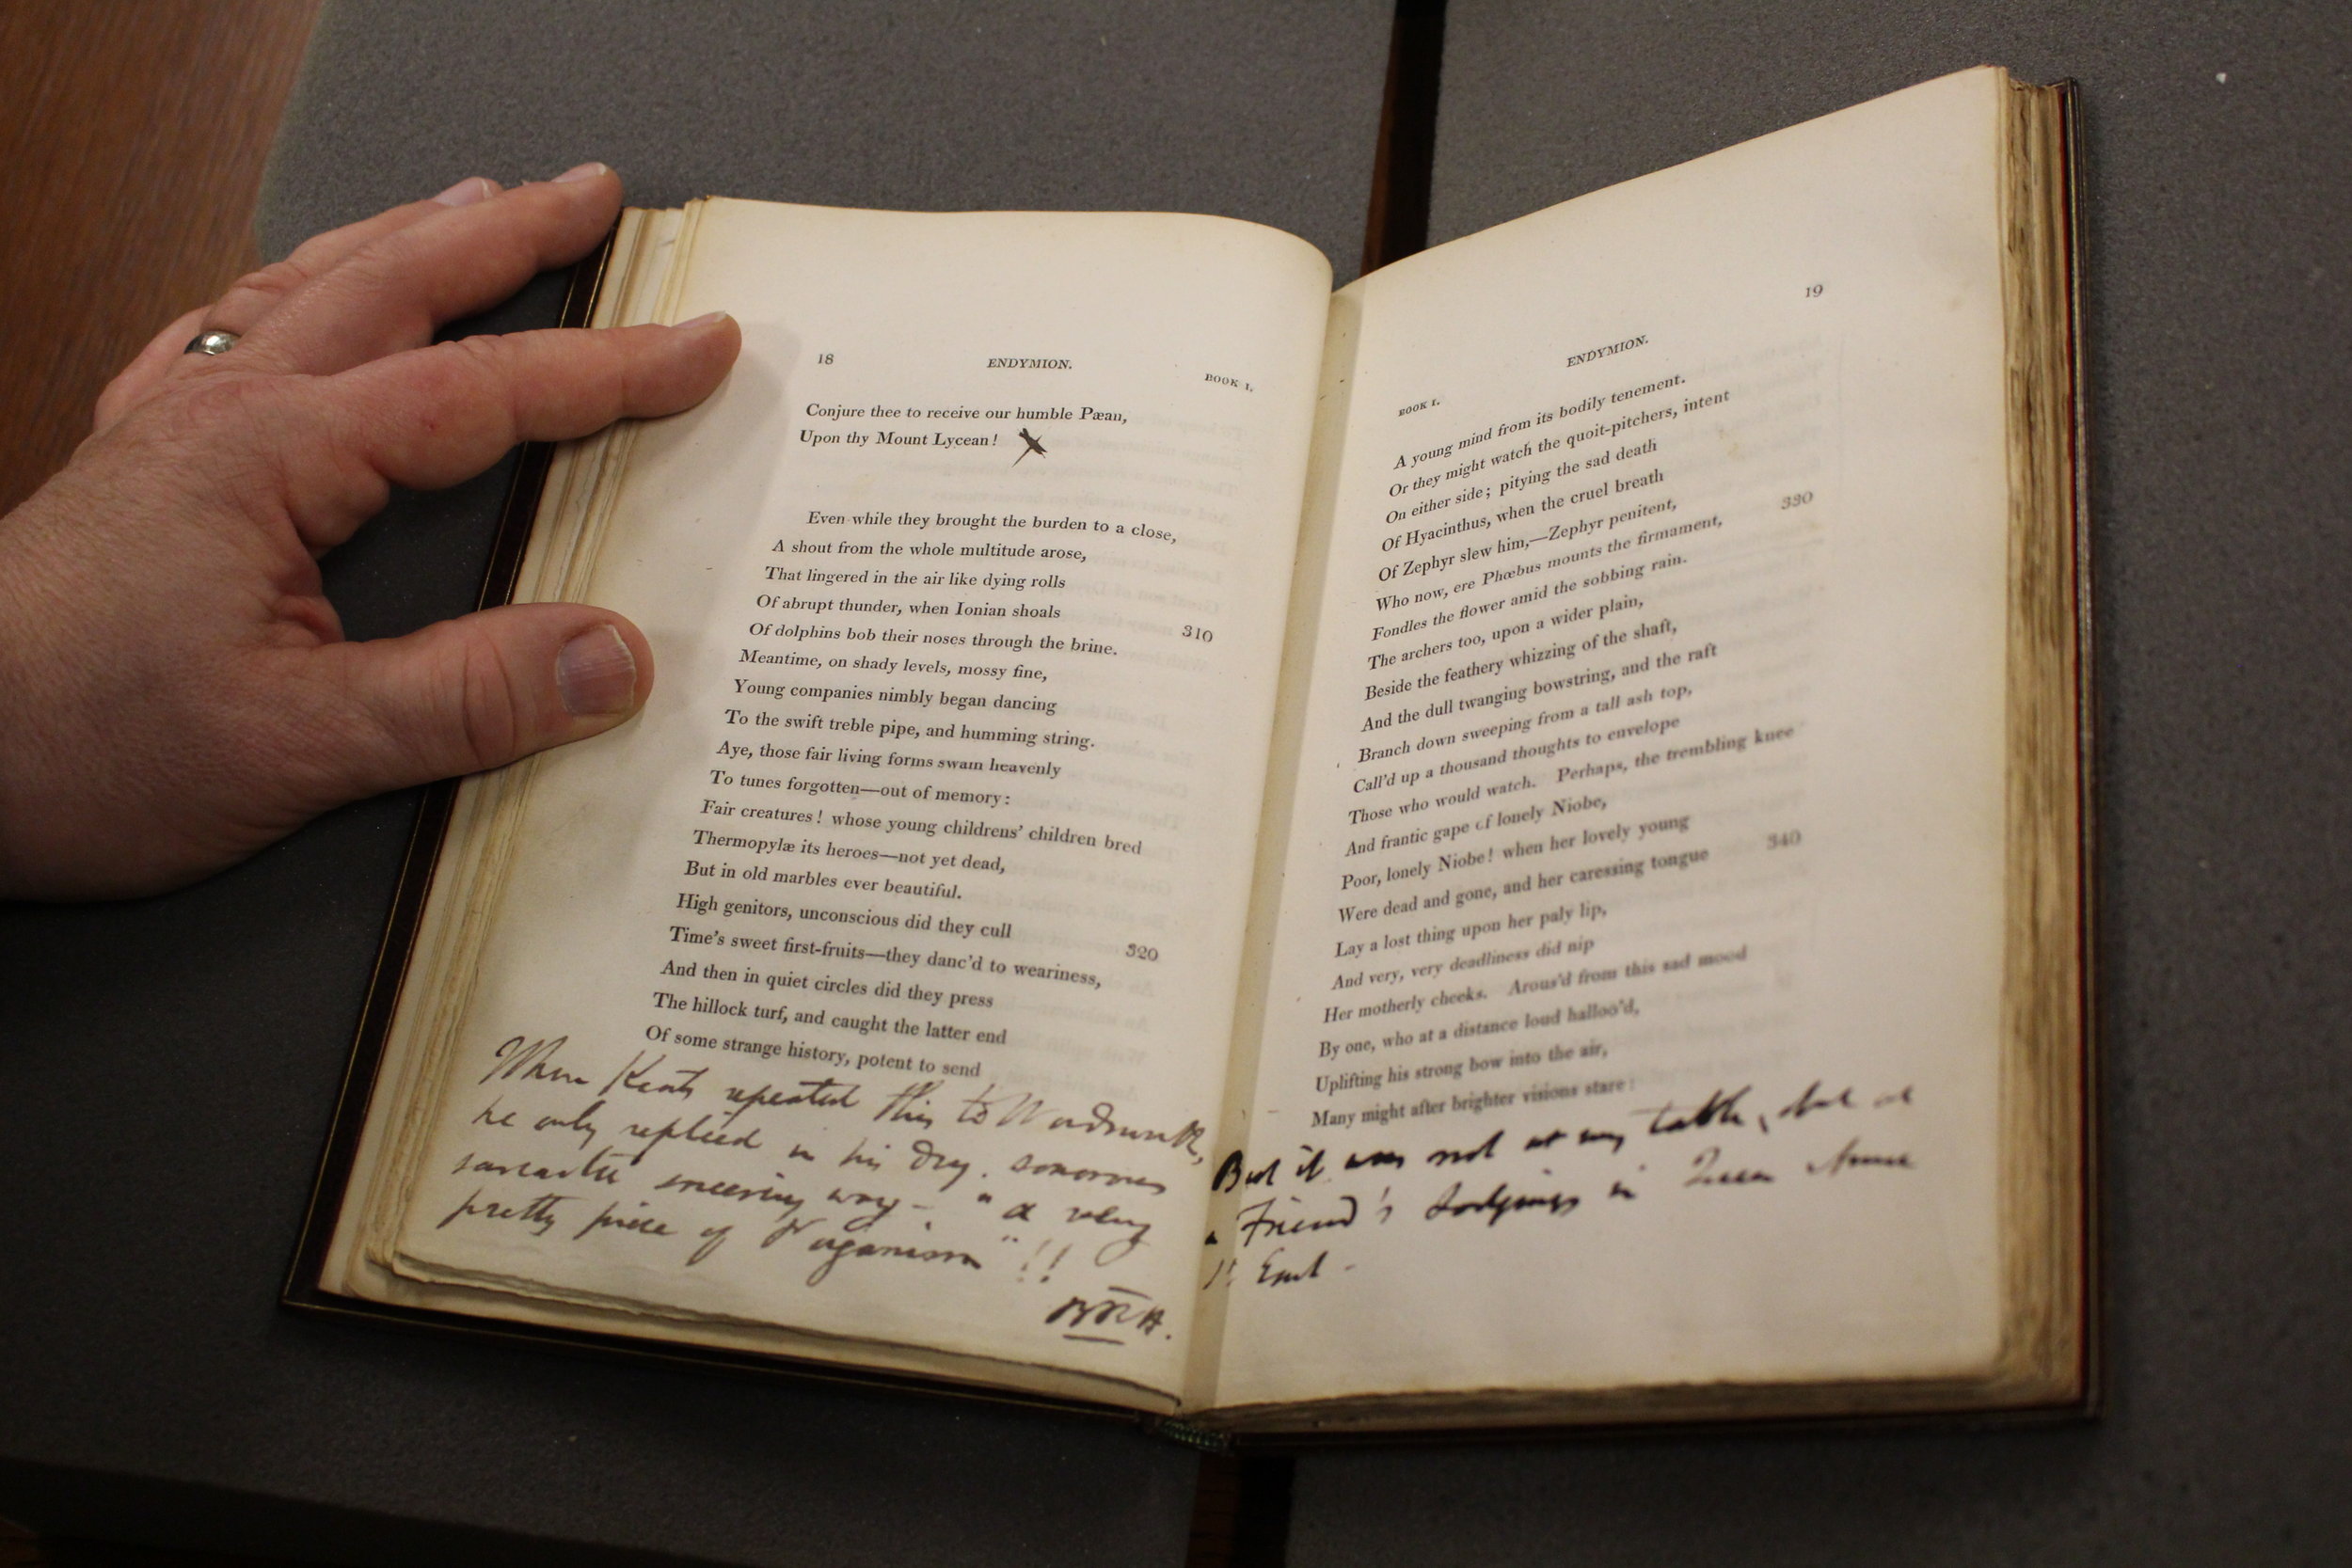 18 ENDYMION. BOOK I.
Conjure thee to receive our humble Pæan,
Upon thy Mount Lycean!
Even while they brought the burden to a close,
A shout from the whole multitude arose,
That lingered in the air like dying rolls
Of abrupt thunder, when Ionian shoals
Of dolphins bob their noses through the brine. 310
Meantime, on shady levels, mossy fine,
Young companies nimbly began dancing
To the swift treble pipe, and humming string.
Aye, those fair living forms swam heavenly
To tunes forgotten—out of memory:
Fair creatures! whose young childrens' children bred
Thermopylæ its heroes—not yet dead,
But in old marbles ever beautiful.
High genitors, unconscious did they cull
Time's sweet first-fruits—they danc'd to weariness, 320
And then in quiet circles did they press
The hillock turf, and caught the latter end
Of some strange history, potent to send
When Keats repeated this to Wordsworth,
he only replied in his dry, sonorous
sarcastic sneering way— "a very
pretty piece of Paganism"!!
BRH.
BOOK I. ENDYMION. 19
A young mind from its bodily tenement.
Or they might watch the quoit-pitchers, intent
On either side; pitying the sad death
Of Hyacinthus, when the cruel breath
Of Zephyr slew him,—Zephyr penitent,
Who now, ere Phœbus mounts the firmament, 330
Fondles the flower amid the sobbing rain.
The archers too, upon a wider plain,
Beside the feathery whizzing of the shaft,
And the dull twanging bowstring, and the raft
Branch down sweeping from a tall ash top,
Call'd up a thousand thoughts to envelope
Those who would watch. Perhaps, the trembling knee
And frantic gape of lonely Niobe,
Poor, lonely Niobe! when her lovely young
Were dead and gone, and her caressing tongue 340
Lay a lost thing upon her paly lip,
And very, very deadliness did nip
Her motherly cheeks. Arous'd from this sad mood
By one, who at a distance loud halloo'd,
Uplifting his strong bow into the air,
Many might after brighter visions stare:
But it was not at my table, but at
a Friend's Lodgings in Queen Anne
St East -